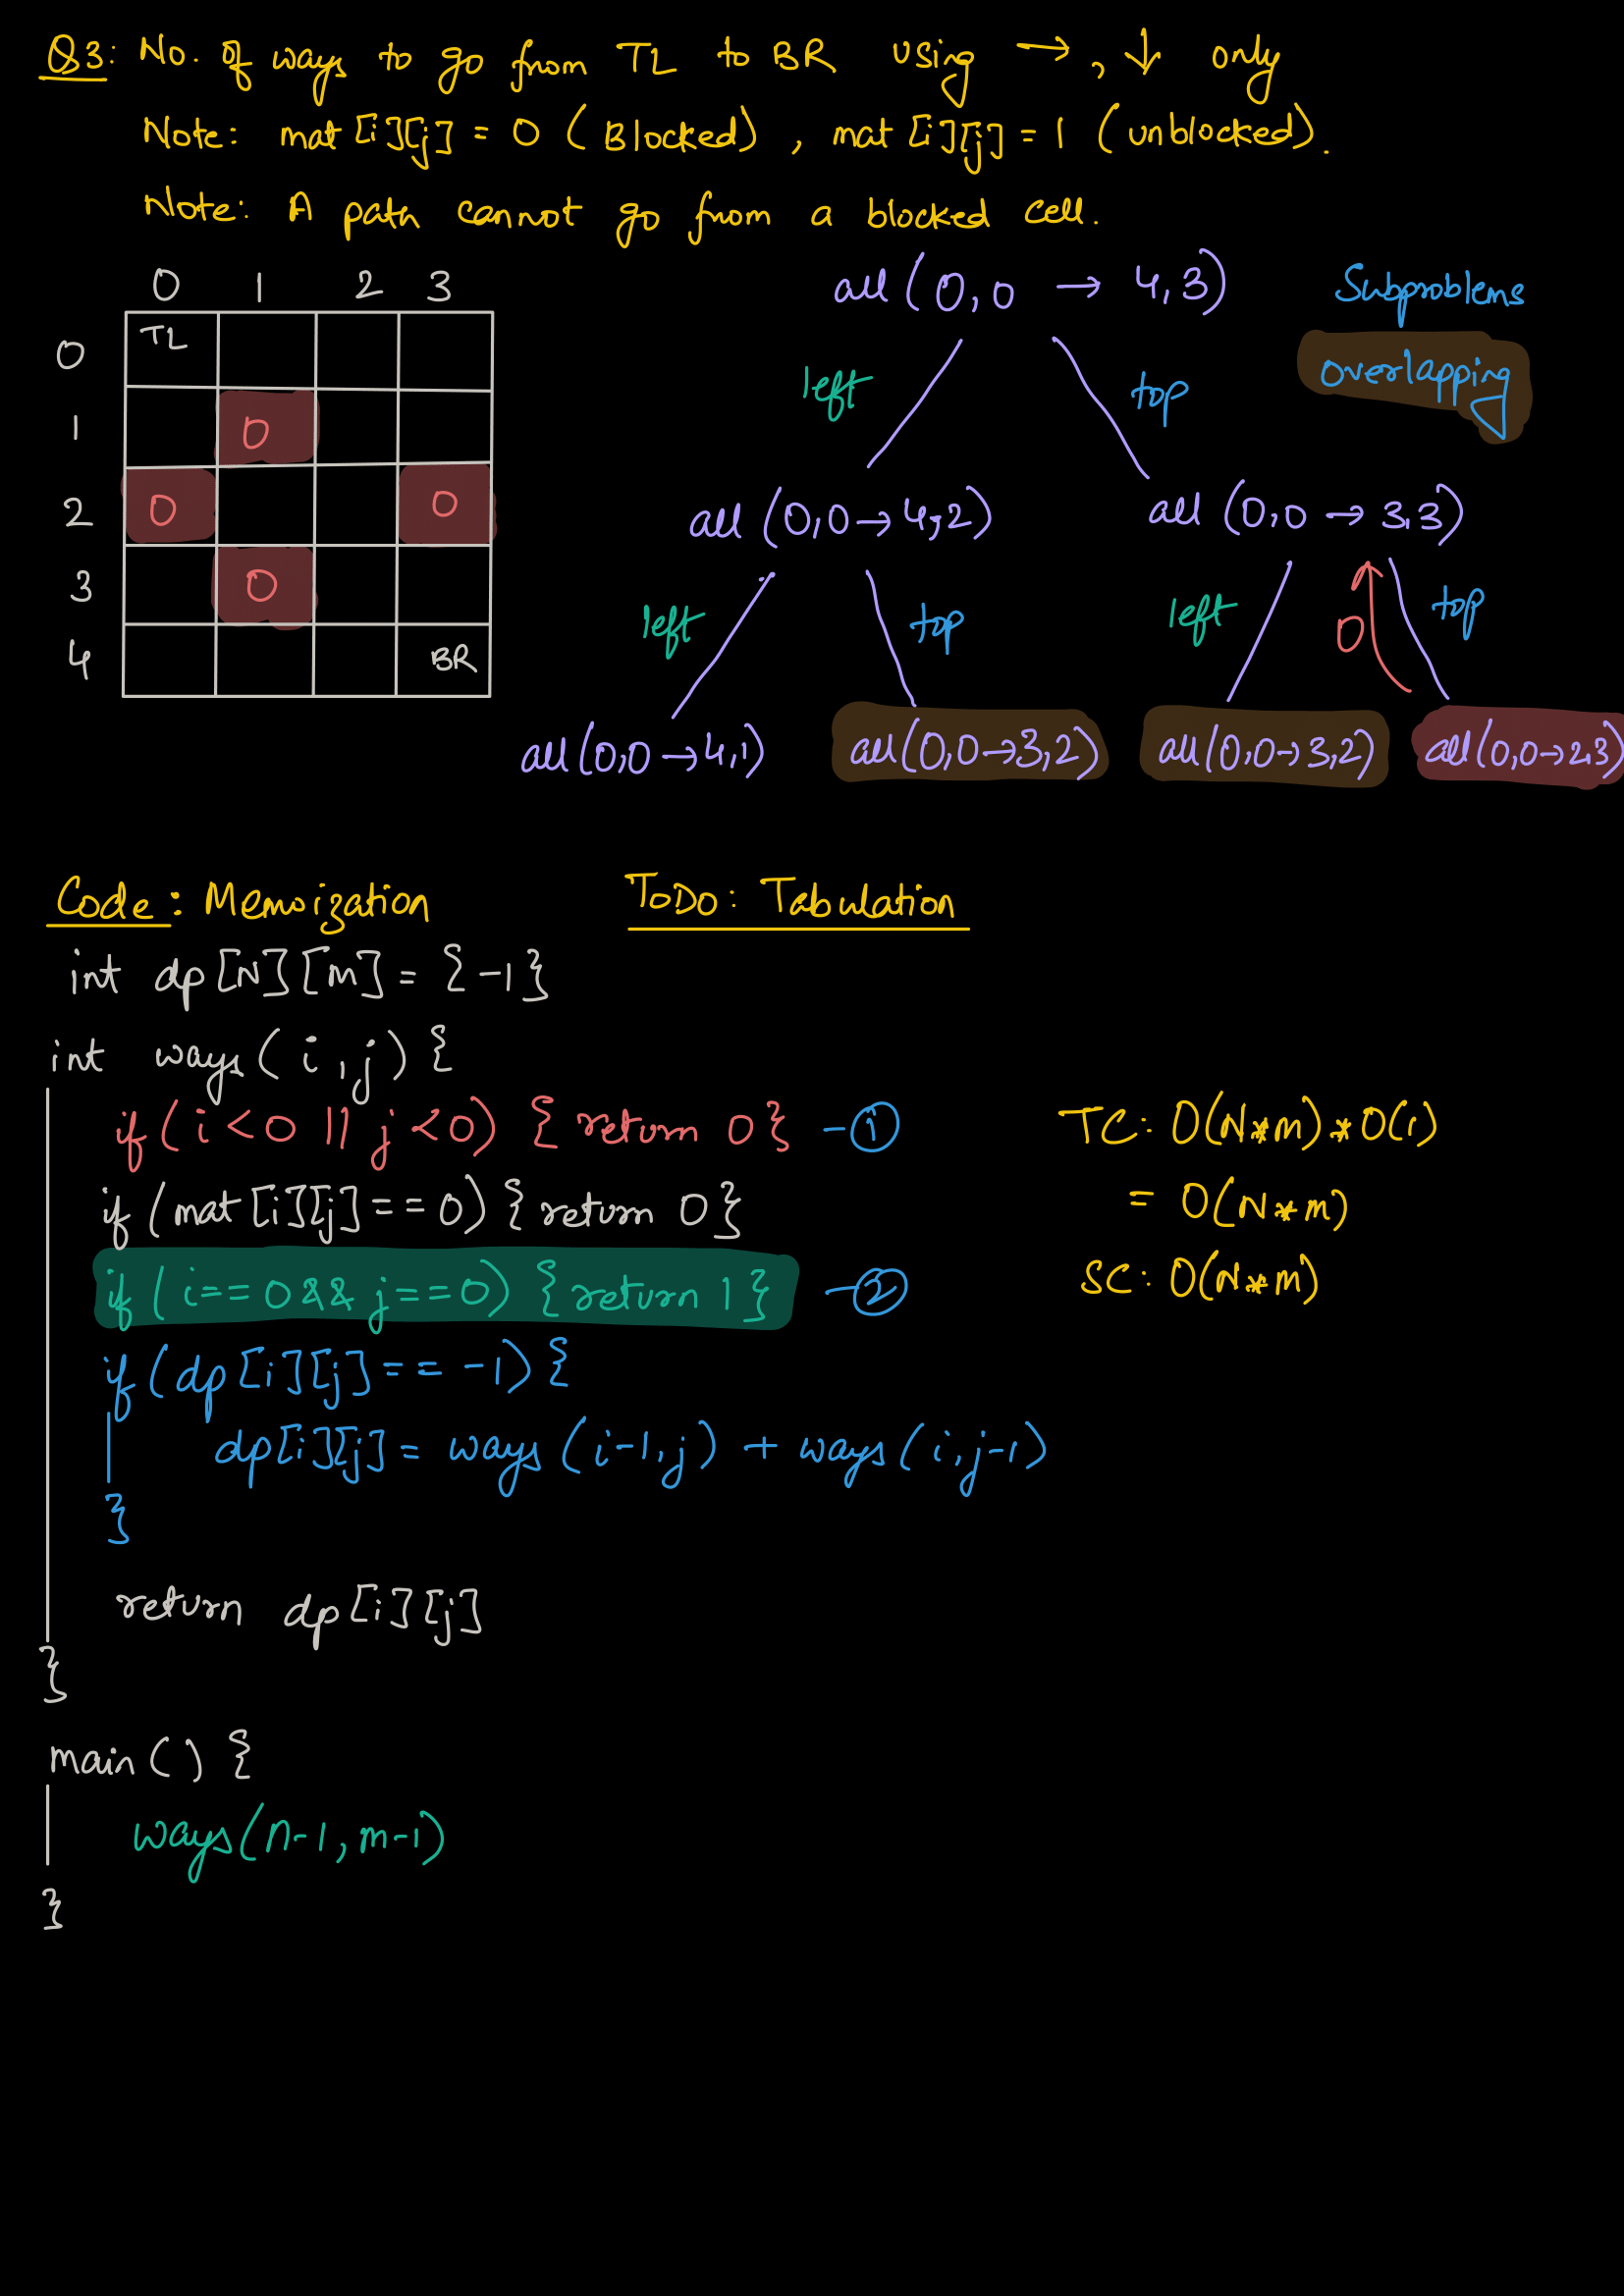 Q3: No. of ways to go from TL to BR using →, ↓ only
Note: mat[i][j] = 0 (Blocked), mat[i][j] = 1 (unblocked).
Note: A path cannot go from a blocked cell.
0 1 2 3
0 TL
1 0
2 0 0
3 0
4 BR
all (0,0 → 4,3)
Subproblems
overlapping
left top
all (0,0→4,2) all (0,0 → 3,3)
left top left 0 top
all(0,0→4,1) all(0,0→3,2) all(0,0→3,2) all(0,0→2,3)
Code: Memoization
ToDo: Tabulation
int dp[N][M] = {-1}
int ways(i,j) {
if(i<0 || j<0) { return 0} -①
if(mat[i][j]==0){return 0}
if(i==0 && j==0) {return 1} -②
if(dp[i][j]== -1){
dp[i][j] = ways(i-1,j) + ways(i,j-1)
}
return dp[i][j]
}
TC: O(N*m)*O(1)
= O(N*m)
SC: O(N*m)
main() {
ways(n-1,m-1)
}